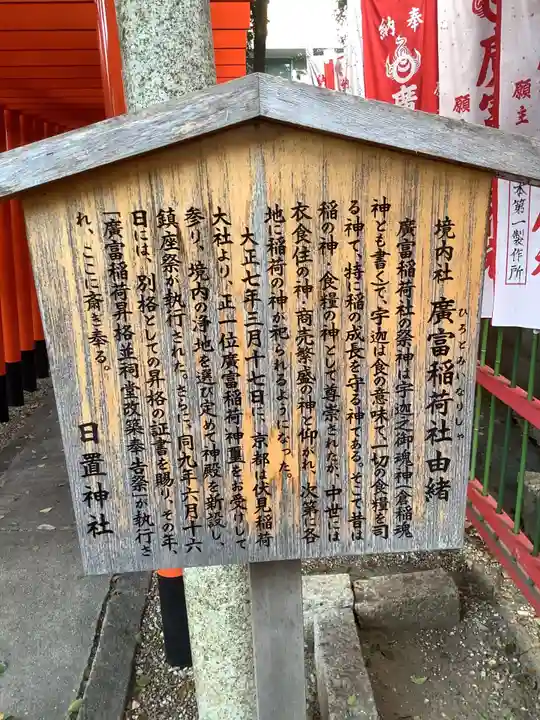 境内社 廣富稲荷社由緒
ひろとみいなりしゃ
廣富稲荷社の祭神は宇迦之御魂神(倉稲魂
神とも書く)で、宇迦は食の意味で、一切の食糧を司
る神で、特に稲の成長を守る神である。そこで昔は
稲の神・食糧の神として尊崇されたが、中世には
衣食住の神・商売繁盛の神と仰がれ、次第に各
地に稲荷の神が祀られるようになった。
大正七年三月十七日に、京都は伏見稲荷
大社より、正一位廣富稲荷神璽をお受けして
参り、境内の浄地を選び定めて神殿を新設し、
鎮座祭が執行された。さらに、同九年六月十六
日には、別格としての昇格の証書を賜り、その年、
「廣富稲荷昇格並祠堂改築奉告祭」が執行さ
れ、ここに斎き奉る。
日置神社
奉納
廣
願主
廣富
願主
本第一製作所